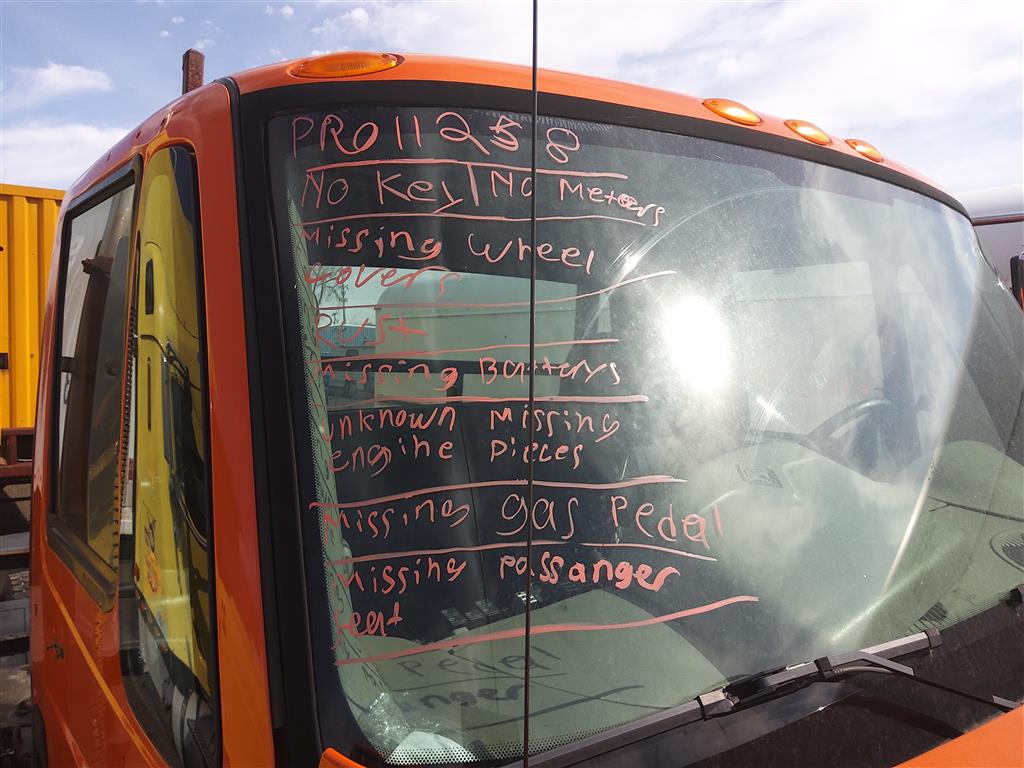 PRO11258
No Key | No Meters
Missing wheel
covers
Rust
Missing Batterys
unknown Missing
engine Pieces
Missing gas Pedal
Missing passanger
seat